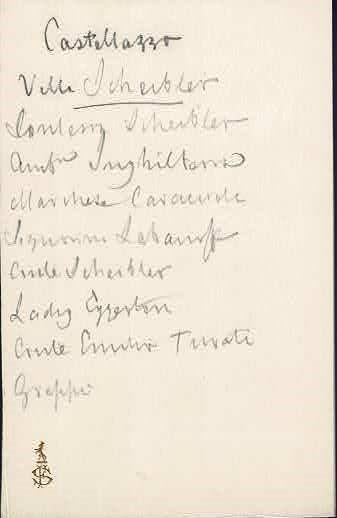 Castellazzo
Villa Scheibler
Contessa Scheibler
Ambre Inghilterra
Marchesa
Signorina Labanoff
Conte Scheibler
Lady Egerton
Conte Emilio Turati
Greppi